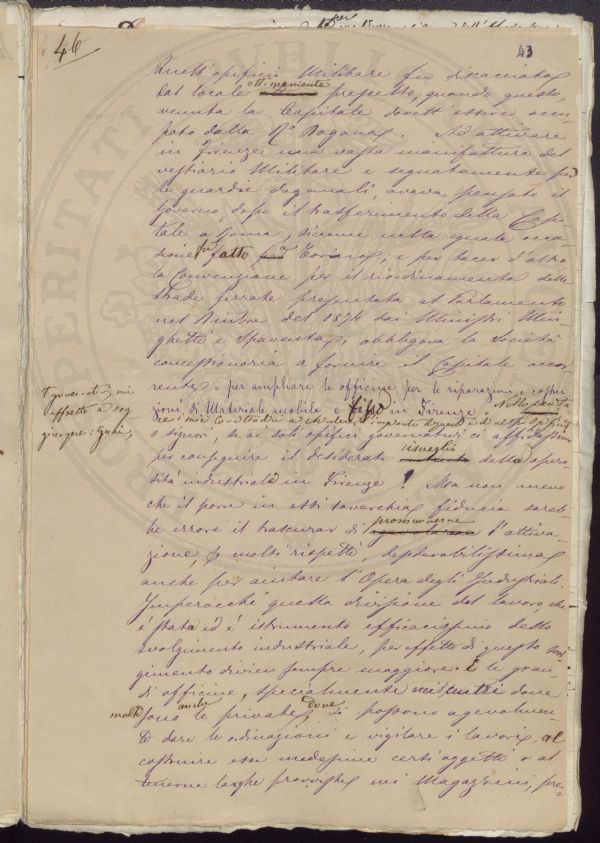 46
43
Quell'opificio Militare fu discacciato
dal locale ottimamente prescelto, quando questo,
venuta la Capitale dovett'essere occu-
pato dalla Rª Dogana. Ad attivare
in Firenze una vasta manifattura del
vestiario Militare e segnatamente per
le guardie doganali, aveva pensato il
Governo, dopo il trasferimento della Capi-
tale a Roma, siccome nella quale occa-
sione fu fatto a Torino; e per tacer d'altro
la Convenzione per il riordinamento delle
strade ferrate presentata al Parlamento
nel dei Ministri Min-
ghetti e Spaventa, obbligava la Società
concessionaria a fornire il Capitale occor-
rente per ampliare le officine per le riparazioni e costru-
zioni di Materiale mobile e fisso in Firenze.
o signori, se ai soli opifici governativi ci affidassimo
per conseguire il desiderato risveglio della opero-
sità industriale in Firenze! Ma non meno
che il porre in essi soverchia fiducia sareb-
be errore il trascurar di promuoverne l'attiva-
zione, per molti rispetti, desiderabilissima
anche per aiutare l'Opera degli Industriali.
Imperocchè quella divisione del lavoro, che
è stata ed è istrumento efficacissimo dello
svolgimento industriale, per effetto di questo svol-
gimento divien sempre maggiore. E le gran-
di officine, specialmente nei centri dove
molte sono anche le private, dove si possono agevolmen-
te dare le ordinazioni e vigilare i lavori, al
costruire esse medesime certi oggetti o al
tenerne larghe provviste nei Magazzini, pre-